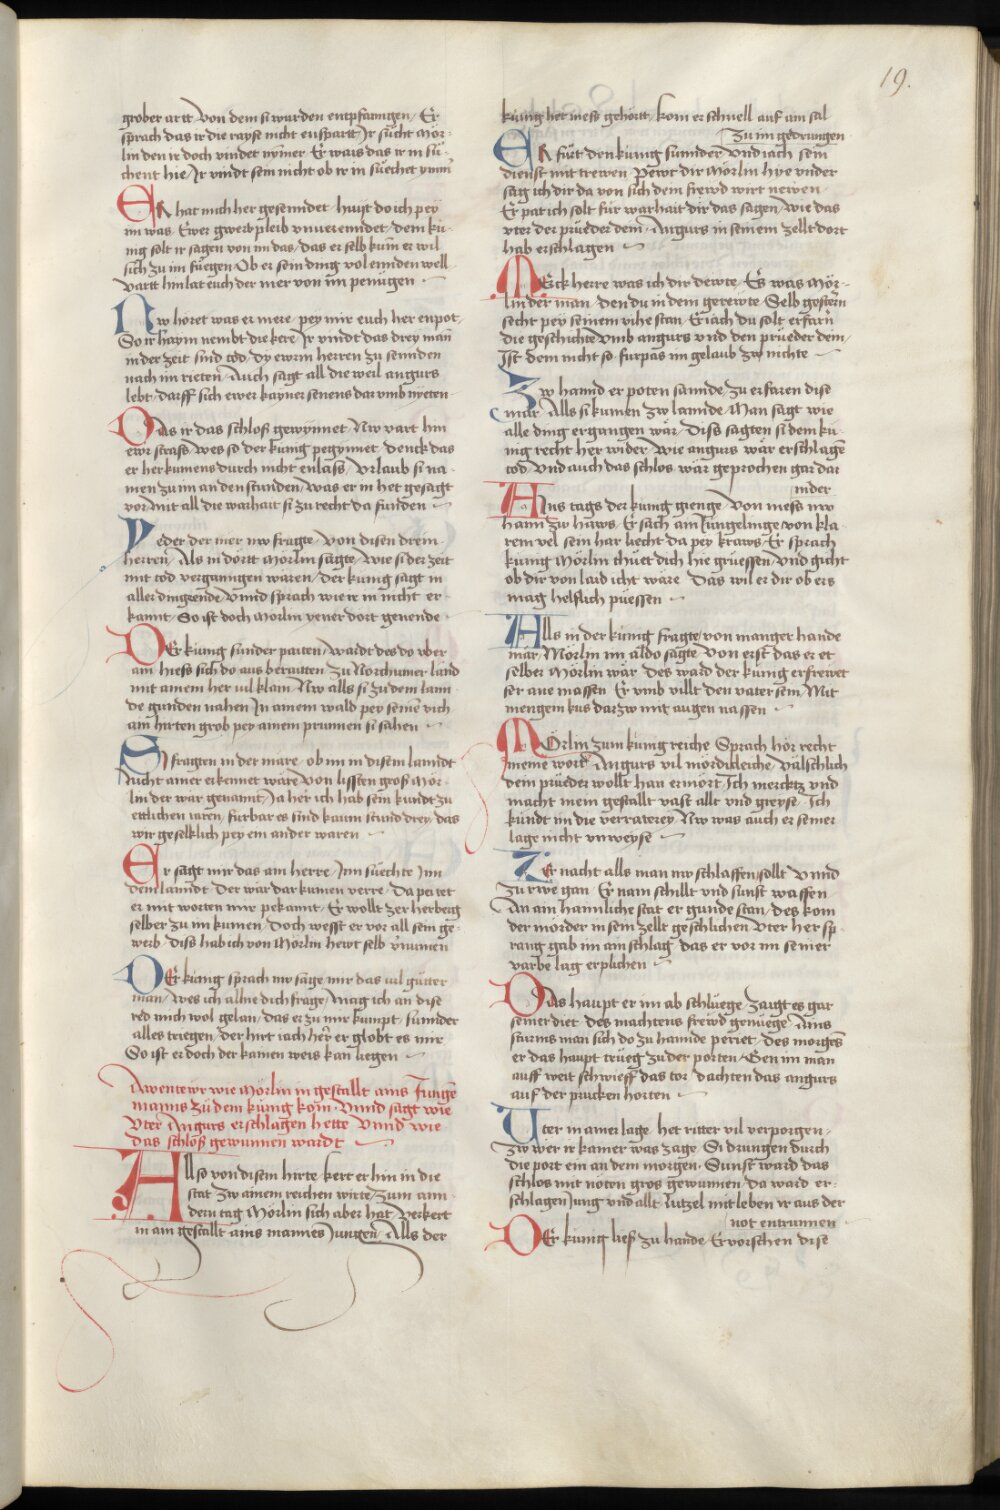 19.
grober artt Von dem si wurden enntpfanngen / Er
sprach das ir die rayse nicht enspartt Ir sücht Mör-
lin den ir doch vindet nymer Er wais das ir in sü-
chent hie / Ir vindt sein nicht ob ir in süechet ymmer
ER hat mich her gesenndet huist do ich pey
im was Ewer gwerb pleib vnuerenndet / dem kü-
nig solt ir sagen von im das / das er selb kum er wil
sich zu im füegen Ob er sein ding vol ennden well
Vartt hin lat euch der mer von im penügen ·
NV horet was er mere pey mir euch her enpot
So ir haym nembt die kere Ir vindt das drey man
in der zeit sind tod dy ewrm herren zu sennden
nach im rieten Auch sagt all die weil angurs
lebt / darff sich ewer kayner senens dar vmb nyeten
DAs ir das schlos gewynnet Nw vart hin
ewr strass / wes so der kunig pegynnet denck das
er her kumens durch nicht enlass / Vrlaub si na-
men zu im an den stunden / was er in het gesagt
vor mit all die warhait si zu recht da funden
Yeder der mer nw fragte von disen drein
herren / Als in dortt Mörlin sagte / wie si der zeit
mit tod vergangen waren / der kunig sagt in
aller ding ende Vnnd sprach wie ir in nicht er-
kannt So ist doch Mörlin yener dort genende
DEr kunig sunder paiten / wardt des do vber
ain hiess sich do aus beraitten zu Norchumer lannd
mit ainem her vil klain Nw alls si zu dem lann-
de gunden nahen In ainem wald pey seinem vich
ain hirten grob pey ainem prunnen si sahen
SI fragten in der märe / ob im in disem lanndt
Nicht ainer erkennet wäre Von lissten gros Mör-
lin der wär genannt / Ja her ich hab sein kundt zu
ettlichen iaren / fürbar es sind kaum stund drey / das
wir geselklich pey ein ander waren
Er sagt mir das ain herre / Inn süechte Inn
dem lanndt Der wär dar kumen verre / Da pei tet
er mit worten mir pekannt / Er wollt zer herberg
selber zu im kumen / Doch wesst er vor all sein ge-
werb diss hab ich von Mörlin hewt selb vernumen
DEr kunig sprach nw sage mir das vil gütter
man / wes ich allhie dich frage / Mag ich an dise
red mich wol gelan / das er zu mir kumpt sunnder
alles triegen / der hirt iach her er globt es mir
So ist er doch der kainen weis kan liegen
Awentewr wie Mörlin in gestallt ains Jungen
manns zu dem kunig kom · Vnnd sagt wie
Vter Angurs erschlagen hette Vnnd wie
das schlos gewunnen wardt
Allso von disem hirte kert er hin in die
stat Zw ainem reichen wirte / zum ann-
dern tag Mörlin sich aber hat Verkert
in ain gestallt ains mannes Jungen / Alls der
kunig het mess gehört / kom er schnell auf ain sal
zu im gedrungen
ER fürt den kunig sunnder Vnd iach sein
dienst mit trewen / Pewt dir Mörlin hye vnder
sag ich dir da von sich dem frewd wirt newen /
Er pat ich solt für warhait dir das sagen / Wie das
vter der prüeder dein Angurs in seinem zellt dort
hab erschlagen
MErck herre was ich dir dewte / Es was Mör-
lin der man / den du in dem gerewte Selb gestern
secht pey seinem vihe stan / Er iach du solt erfarn
die geschichte vmb angurs vnd den prüeder dein /
Ist dem nicht so fürpas im gelaub zw nichte
Zw hannd er poten sannde zu erfaren dise
mär Alls si kumen zw lannde / Man sagt wie
alle ding ergangen wär / Diss sagten si dem kü-
nig recht her wider wie angurs wär erschlagen
tod Vnd auch das schlos wär geprochen gar dar
nider
AIns tags der kunig gienge Von mess nw
haim zw haws Er sach ain Jungelinge von kla-
rem vel sein har liecht da pey kraws / Er sprach
kunig Mörlin thüet dich hie grüessen / Vnd gicht
ob dir von laid icht wäre Das wil er dir ob ers
mag helflich püessen
ALls in der kunig fragte / von manger hande
mär Mörlin im aldo sagte Von erst das er et
selber Mörlin wär des ward der kunig erfrewet
ser ane massen Er vmb villt den vater sein Mit
mengem kus dar zw mit augen nassen
MÖrlin zum kunig reiche Sprach hör recht
meine wort Angurs vil mördickleiche Välschlich
dein prüeder wollt han ermört / Ich mercktz vnd
macht mein gestallt vast allt vnd greyse Ich
kündt im die verraterey Nw was auch er seiner
lage nicht vnweyse
ZEr nacht alls man nw schlaffen sollt Vnnd
zu rwe gan Er nam schillt vnd sunst waffen
An ain hainnliche stat er gunde stan / des kom
der mörder in sein zellt geschlichen Vter her sp-
rang gab im ain schlag das er vor im seiner
varbe lag erplichen
DAs haupt er im ab schlüege zaigt es gar
seiner diet des machtens frewd genüege Ains
sturms man sich do zu hannde periet / des morgens
er das haupt trüeg zu der porten / Gen im man
auff weit schwieff das tor dachten das angurs
auf der prucken horten
Uter in ainer lage het ritter vil verporgen
Zw wer ir kainer was zage Si drungen durch
die port ein an dem morgen Sunst ward das
schlos mit noten gros gewunnen / da ward er-
schlagen Jung vnd allt lützel mit leben ir aus der
not entrunnen
DEr kunig lies zu hande Ervorschen dise